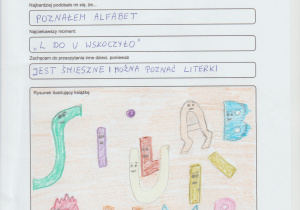 Najbardziej podobało mi się, że...
POZNAŁEM ALFABET
Najpiękniejszy moment:
„L DO U WSKOCZYŁO"
Zachęcam do przeczytania inne dzieci, ponieważ
JEST ŚMIESZNE I MOŻNA POZNAĆ LITERKI
Rysunek ilustrujący książkę
S I U A B